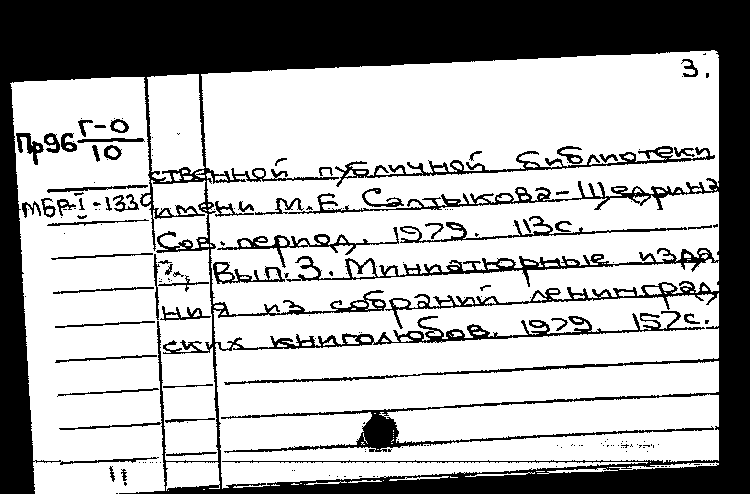 3.
Пр96 Г-О
10
МБР-I-1339
ственной публичной библиотеки
имени М.Е. Салтыкова-Щедрина
Сов. период. 1979. 113с.
Вып.3. Миниатюрные изда-
ния из собраний ленинград-
ских книголюбов. 1979. 157с.
11